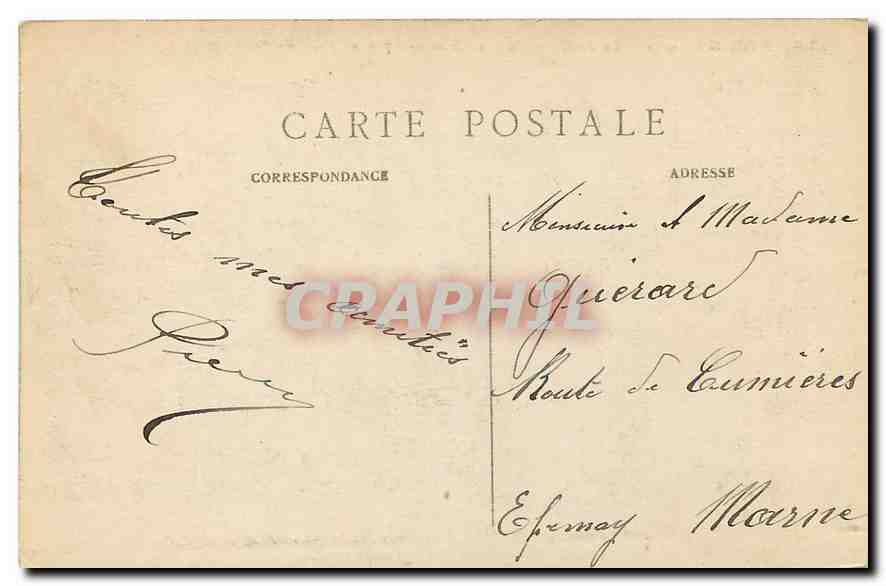 CARTE POSTALE
CORRESPONDANCE
ADRESSE
Toutes mes amitiés
Monsieur et Madame
Guérard
Route de Cumières
Epernay Marne
CPAPHIL